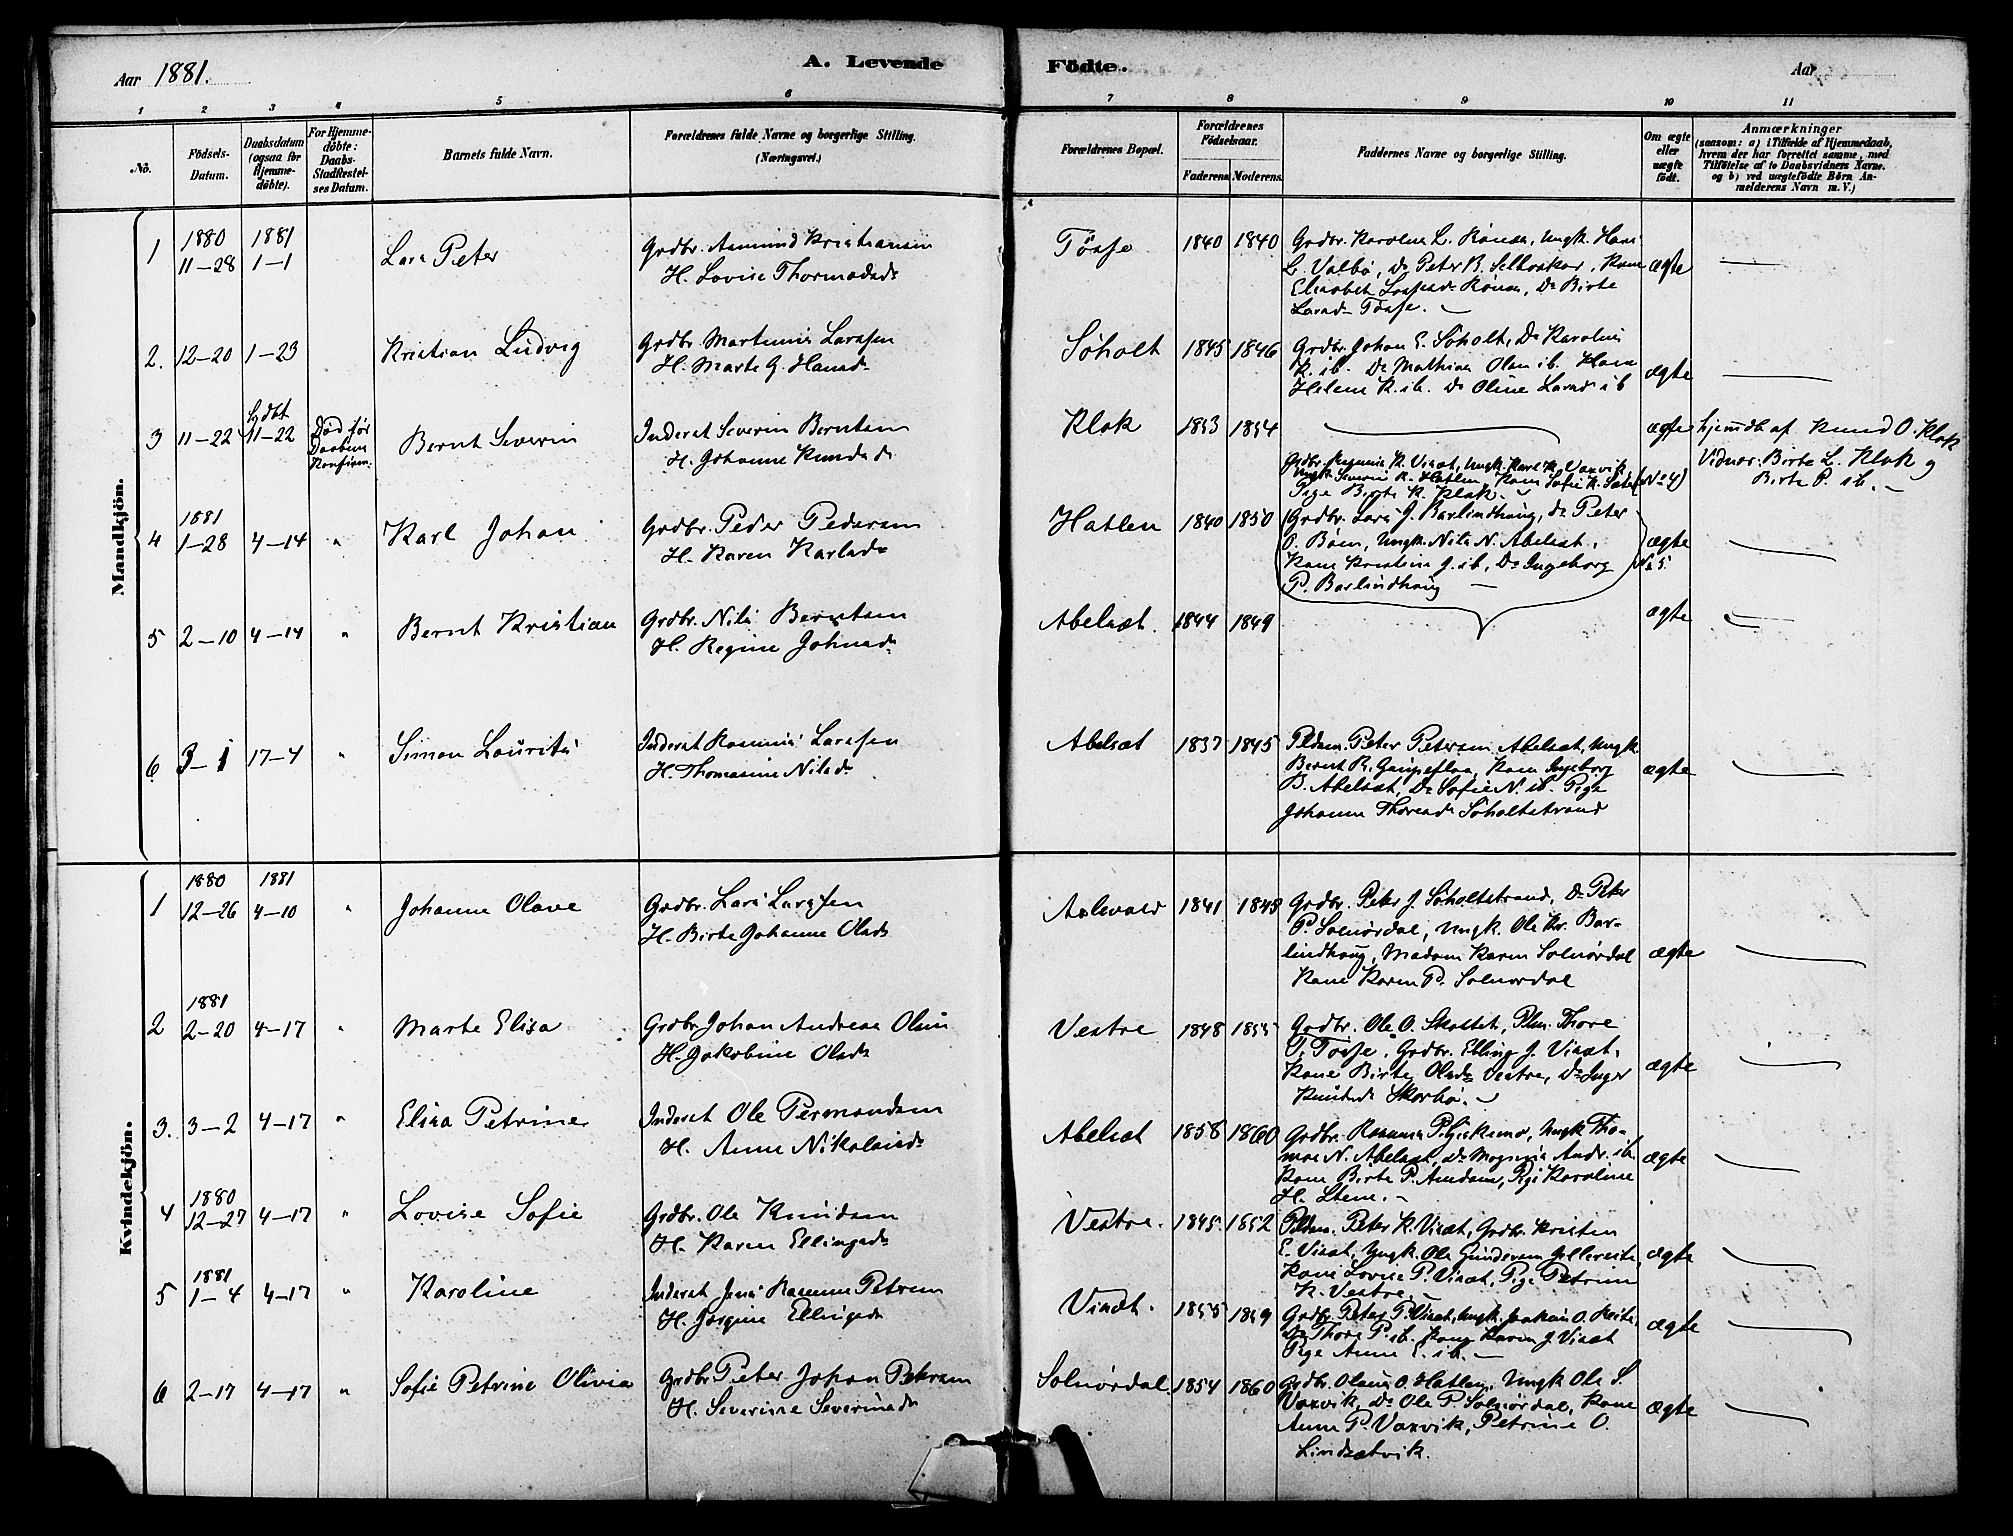 Aar 1881.
A. Levende Födte.
Aar
1 2 3 4 5 6 7 8 9 10 11
No.
Födsels-Datum.
Daabsdatum (ogsaa for Hjemme-döbte).
For Hjemme-döbte: Daabs-Stadfæstel-ses Datum.
Barnets fulde Navn.
Forældrenes fulde Navne og borgerlige Stilling. (Næringsvei.)
Forældrenes Bopæl.
Forældrenes Födselsaar.
Faderens. Moderens.
Faddernes Navne og borgerlige Stilling.
Om ægte eller uægte födt.
Anmærkninger
(saasom: a) i Tilfælde af Hjemmedaab, hvem der har forrettet samme, med Tilföielse af to Daabsvidners Navne. og b) ved uægtefödte Börn An-melderens Navn m. V.)
Mandkjön.
1 1880 11-28 1881 1-1 Lars Peter
Grdbr. Aamund Kristiansen
H. Lovise Thormodsd.
Tösse 1840 1840
Elisabet
Tösse.
ægte
2. 12-20 1-23 Kristian Ludvig
Grdbr. Martinus Larssen
H. Marte G. Hansd.
Söholt 1845 1846
Grdbr. Johan E. Söholt, Do Karolius
K. ib. Do Mathias Olsen ib. Kone
Helene K. ib. Do Oline Larsd. ib
ægte
3 11-22 hjdbt 11-22 Död før Daabens Konfirm.
Bernt Severin
Inderst Severin Berntsen
H. Johanne Knudsd.
Klok 1853 1854
ægte
hjemdb. af Knud O. Klok
Vidner: Birte L. Klok og
Birte P. ib.
Pige Birte K. Klok.
(No 4)
4 1881 1-28 4-14 " Karl Johan
Grdbr. Peder Pedersen
H. Karen Karlsd.
Hatlen 1840 1850
(Grdbr. Lars J. Barlindhaug, do Peter
O. Böen, Ungk. Nils N. Abelsæt,
Kone Kristine J. ib, Do Ingeborg
P. Barlindhaug
ægte
No 5.
5 2-10 4-14 " Bernt Kristian
Grdbr. Nils Berntsen
H. Regine Johnsd.
Abelsæt. 1844 1849
ægte
6 3-1 17-4 " Simon Laurits
Inderst Rasmus Larssen
H. Thomasine Nilsd.
Abelsæt 1837 1845
Pldsm. Peter Petersen Abelsæt, Ungk.
Bernt R. Gaupeflaa, Kone Ingeborg
B. Abelsæt, Do Sofie N. ib. Pige
Johanne Thoresd. Söholtstrand
ægte
Kvindekjön.
1 1880 12-26 1881 4-10 " Johanne Olave
Grdbr. Lars Larssen
H. Birte Johanne Olsd.
1841
Grdbr. Peter J. Söholtstrand, Do Peter
P. Solnördal, Ungk. Ole Kr. Bar-
lindhaug, Madam Karen Solnördal
Kone Karen P. Solnørdal
ægte
2 1881 2-20 4-17 " Marte Elisa
Grdbr. Johan Andreas Olsen
H. Jakobine Olsd.
Vestre 1848 1855
Grdbr. Ole O. Skottet, Plm. Thore
T. Tösse, Grdbr. Elling J. Visæt,
Kone Birte Olsd. Vestre, Do Inger
Knutsd. Skorbö.
ægte
3. 3-2 4-17 " Elisa Petrine
Inderst Ole Permondsen
H. Anne Nikolaisd.
Abelsæt 1858 1860
mas N. Abelsæt, Do Andr. ib.
Kone Birte P. Amdam, Pige Karoline
ægte
4 1880 12-27 4-17 " Lovise Sofie
Grdbr. Ole Knudsen
H. Karen Ellingsd.
Vestre. 1845 1852
Pldsm. Peter K. Visæt, Grdbr. Kristen
E. Visæt, Ungk. Ole Gundersen
Kone Lovise P. Visæt, Pige Petrine
K. Vestre.
ægte
5 1881 1-4 4-17 " Karoline
Inderst Jens Rasmus Petersen
H. Jörgine Ellingsd.
Visæt. 1855 1859
Grdbr. Peter P. Visæt, Ungk. Joakim O. Reite,
Do Thore P. ib. Kone Karen J. Visæt
Pige Anne E. ib.
ægte
6 2-17 4-17 " Sofie Petrine Olivia
Grdbr. Peter Johan Petersen
H. Severine Severinsd.
Solnørdal 1854 1860
Grdbr. Olaus O. Hatlen, Ungk Ole S.
Vaxvik, Do Ole P. Solnørdal, Kone
Anne P. Vaxvik, Petrine O.
Lindsætvik.
ægte